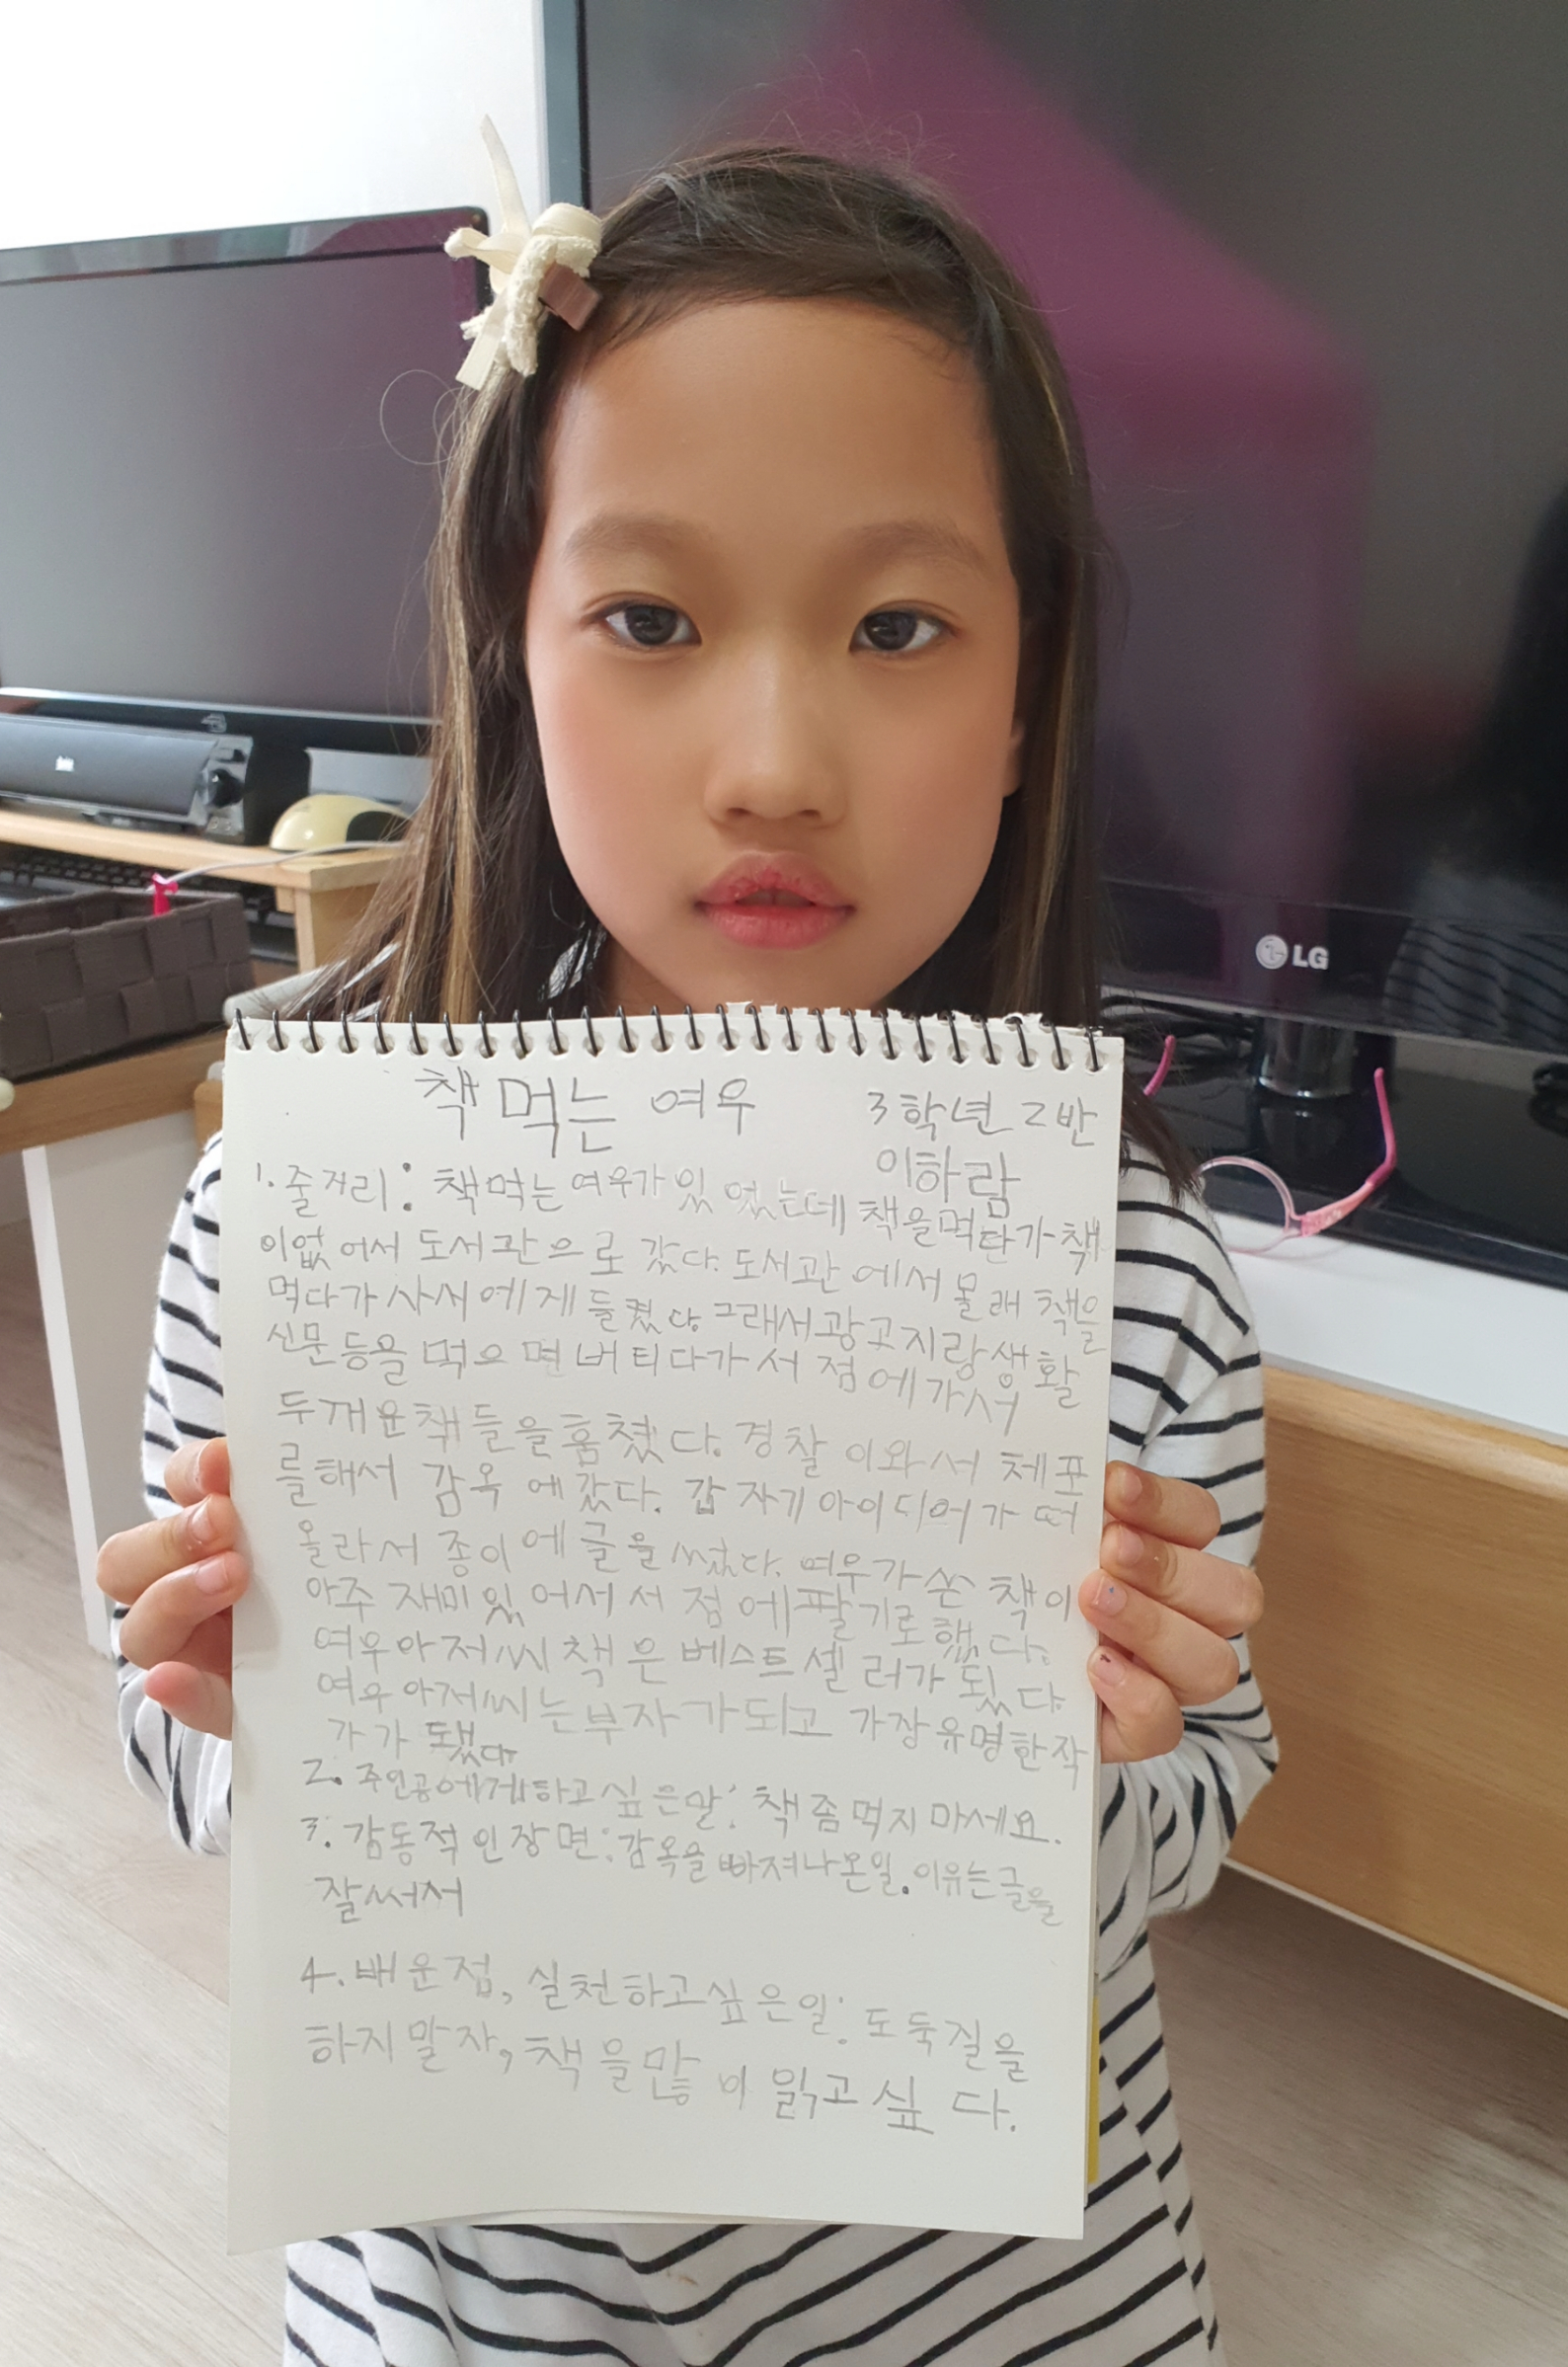 LG
책 먹는 여우 3학년 2반
이하람
1. 줄거리: 책먹는 여우가 있었는데 책을 먹다가 책
이없어서 도서관으로 갔다. 도서관에서 몰래 책을
먹다가 사서에게 들켰다. 그래서 광고지랑 생활
신문 등을 먹으면 버티다가 서점에 가서
두꺼운 책들을 훔쳤다. 경찰이 와서 체포
를 해서 감옥에 갔다. 갑자기 아이디어가 떠
올라서 종이에 글을 썼다. 여우가 쓴 책이
아주 재미있어서 서점에 팔기로 했다.
여우아저씨 책은 베스트셀러가 됬다.
여우아저씨는 부자가 되고 가장 유명한 작
가가 됐다.
2. 주인공에게 하고 싶은 말: 책 좀 먹지 마세요.
3. 감동적인 장면: 감옥을 빠져나온일. 이유는 글을
잘써서
4. 배운점, 실천하고 싶은 일: 도둑질을
하지말자, 책을 많이 읽고 싶다.